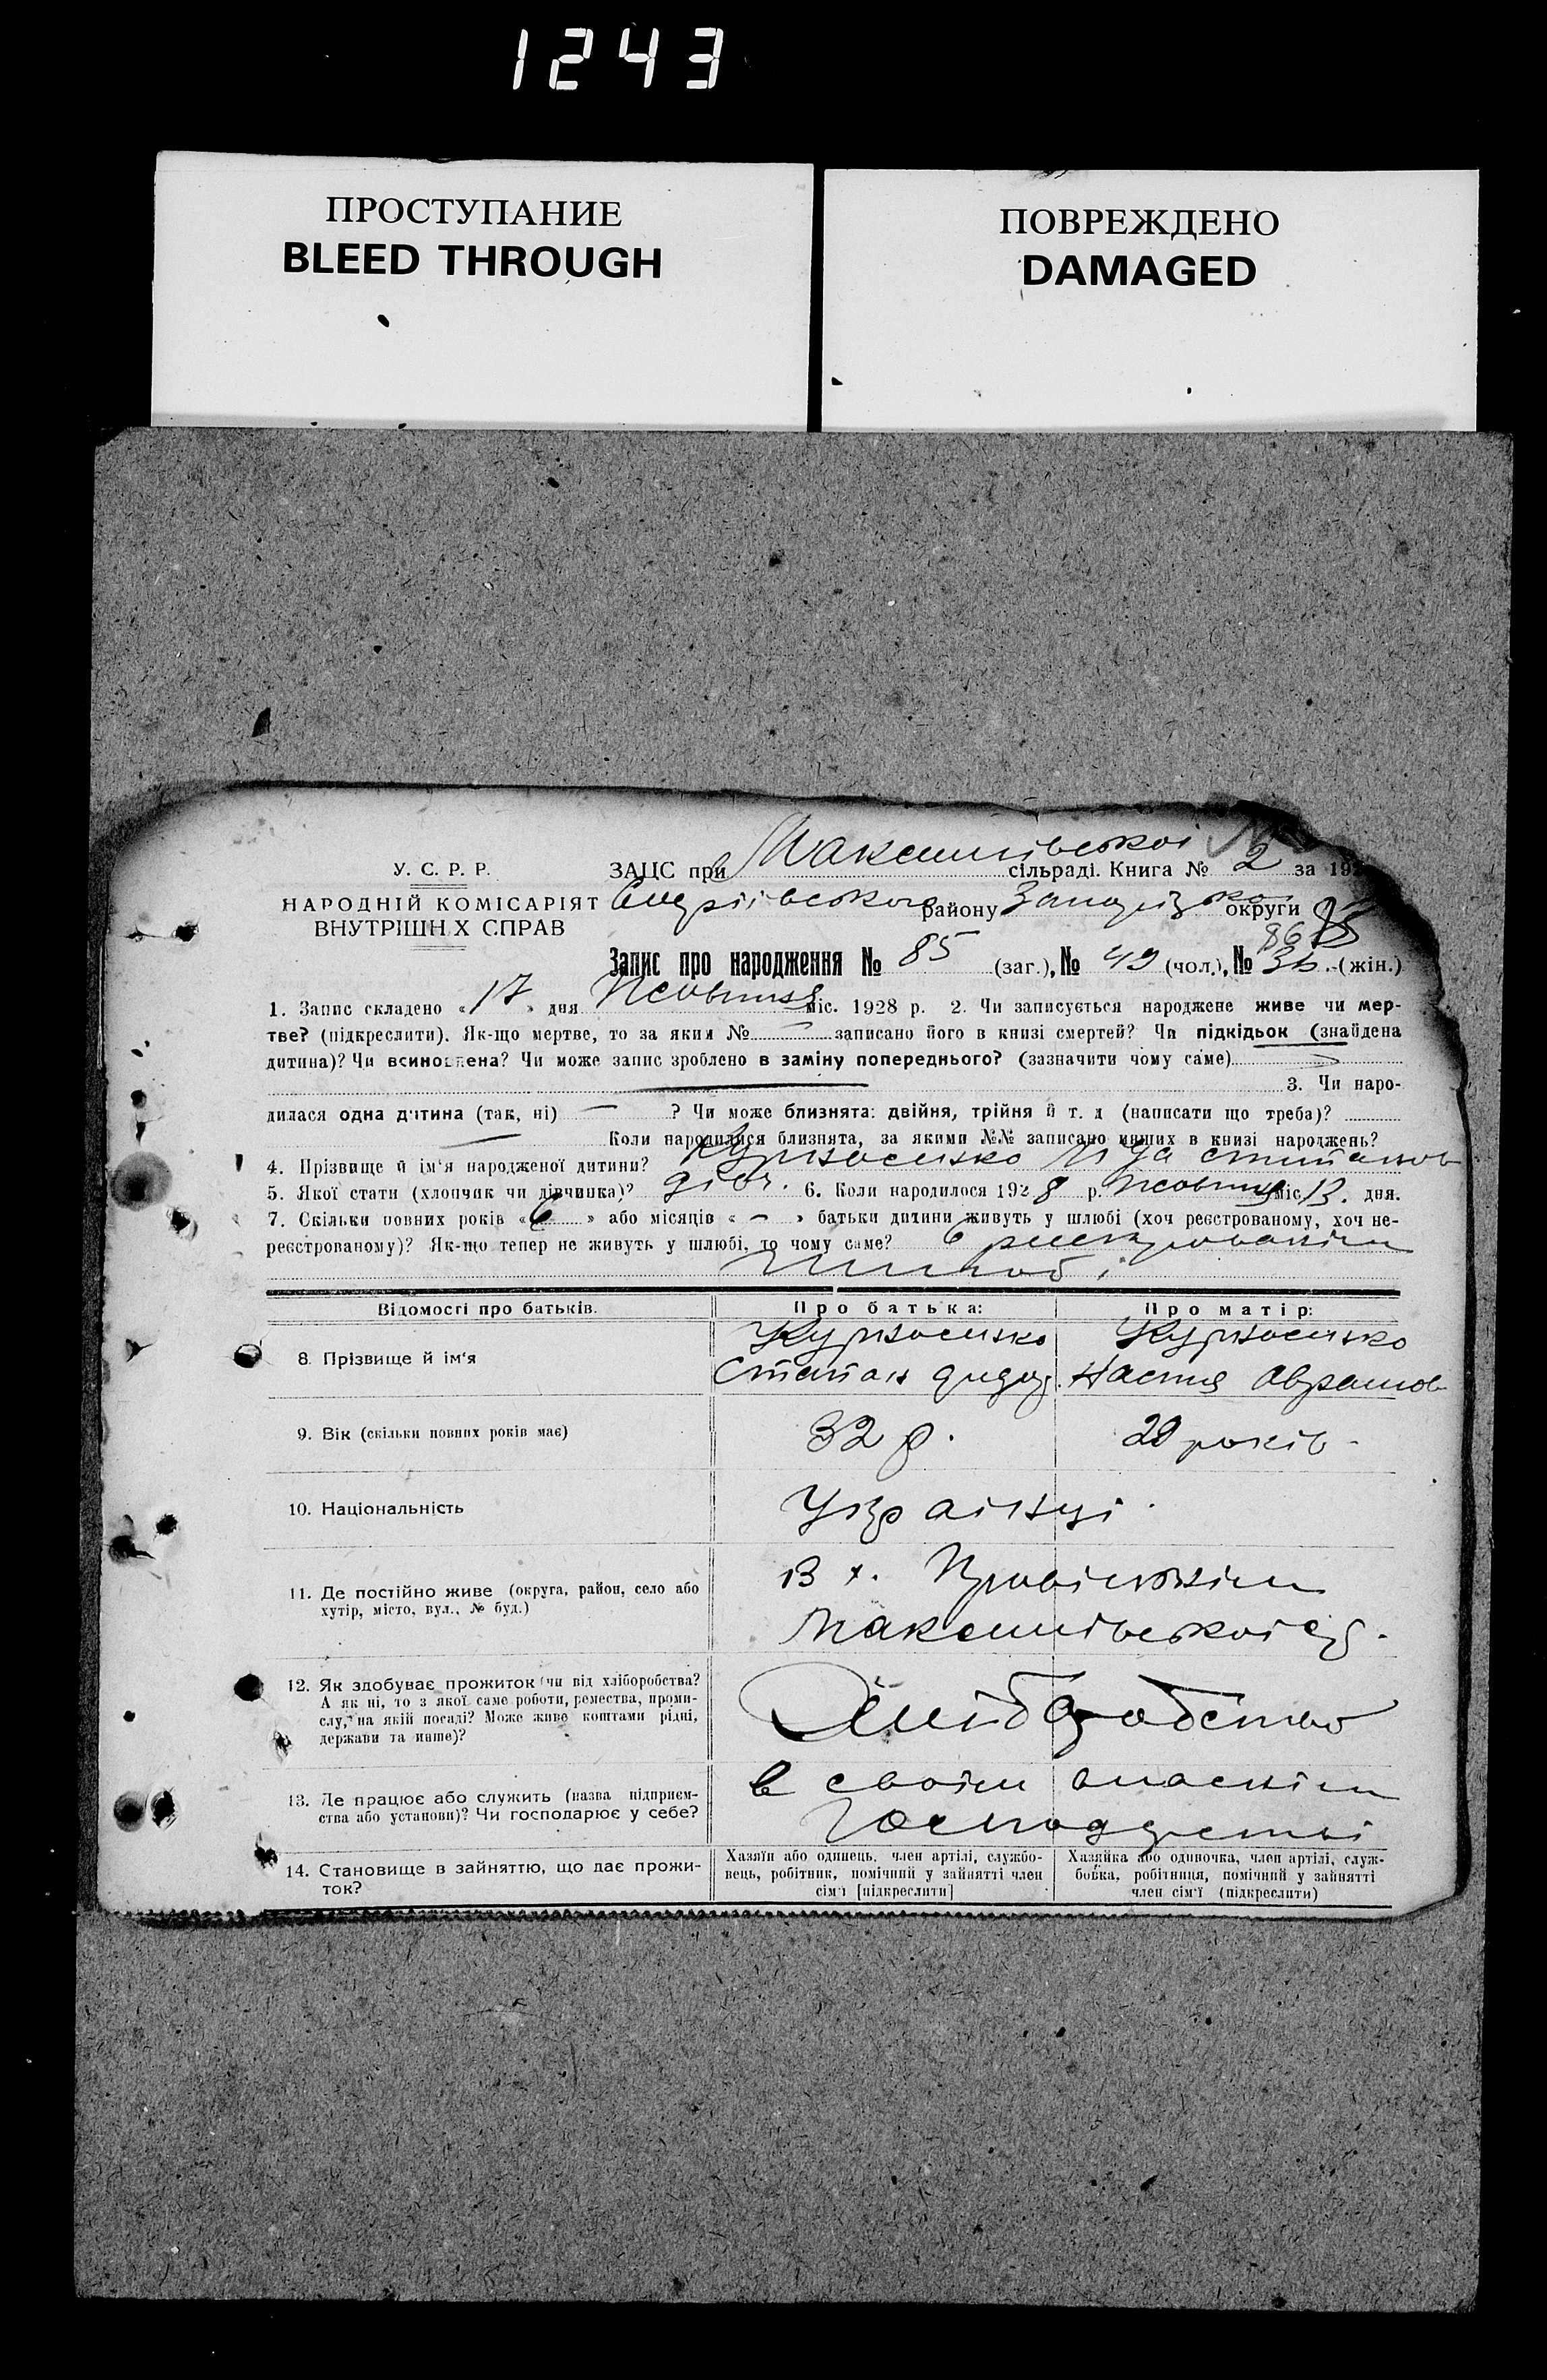 1243
ПРОСТУПАНИЕ
BLEED THROUGH
ПОВРЕЖДЕНО
DAMAGED
У. С. Р. Р.
НАРОДНІЙ КОМІСАРІЯТ
ВНУТРІШН Х СПРАВ
ЗАЦС при сільраді. Книга № 2 за 192
району округи
86 85
Запис про народження № 85 (заг.), № 49 (чол.), № 36 (жін.)
1. Запис складено « 17 » дня Жовтня міс. 1928 р. 2. Чи записується народжене живе чи мер-
тве? (підкреслити). Як-що мертве, то за яким № записано його в книзі смертей? Чи підкідьок (знайдена
дитина)? Чи всиновлена? Чи може запис зроблено в заміну попереднього? (зазначити чому саме)
3. Чи наро-
дилася одна дитина (так, ні) — ? Чи може близнята: двійня, трійня й т. д (написати що треба)?
Коли народилися близнята, за якими №№ записано инших в книзі народжень?
4. Прізвище й ім'я народженої дитини?
5. Якої стати (хлопчик чи дівчинка)? дівч. 6. Коли народилося 1928 р. Жовтня міс 13. дня.
7. Скільки повних років « 6 » або місяців « – » батьки дитини живуть у шлюбі (хоч реєстрованому, хоч не-
реєстрованому)? Як-що тепер не живуть у шлюбі, то чому саме? В
шлюбі
Відомості про батьків.
Про батька:
Про матір:
8. Прізвище й ім'я
Степан
Настя
9. Вік (скільки повних років має)
32 р.
29 років.
10. Національність
Українці.
11. Де постійно живе (округа, район, село або
хутір, місто, вул., № буд.)
В х.
12. Як здобуває прожиток (чи від хліборобства?
А як ні, то з якої саме роботи, ремества, проми-
слу, на якій посаді? Може живе коштами рідні,
держави та инше)?
13. Де працює або служить (назва підприєм-
ства або установи)? Чи господарює у себе?
в своїм власнім
14. Становище в зайняттю, що дає прожи-
ток?
Хазяїн або одинець, член артілі, службо-
вець, робітник, помічний у зайнятті член
сім'ї [підкреслити]
Хазяйка або одиночка, член артілі, служ-
бовка, робітниця, помічний у зайнятті
член сім'ї (підкреслити)